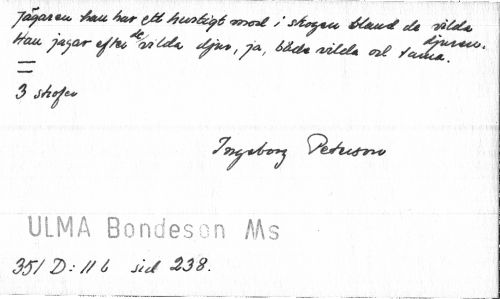 Jägaren han har ett hurtigt mod i skogen bland de vilda djuren.
Han jagar efter de vilda djur, ja, både vilda och tama.
3 strofer
Ingeborg Peterson
ULMA Bondeson Ms
351 D:11 b sid 238.